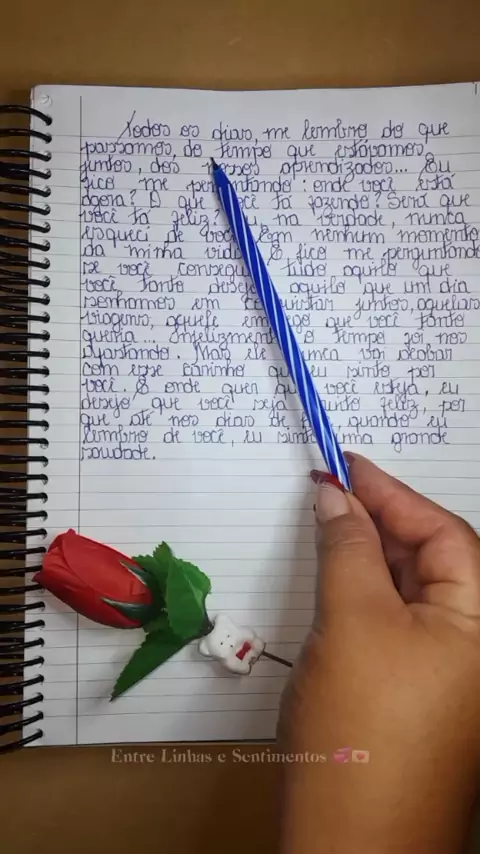 Todos os dias, me lembro do que
passamos, do tempo que estávamos
juntos, dos nossos aprendizados... Eu
fico me perguntando: onde você está
agora? O que você tá fazendo? Será que
você tá feliz? Eu, na verdade, nunca
esqueci de você em nenhum momento
da minha vida. E fico me perguntando
se você conseguiu tudo aquilo que
você tanto desejou, aquilo que um dia
sonhamos em conquistar juntos, aquelas
viagens, aquele emprego que você tanto
queria... Infelizmente o tempo foi nos
afastando. Mais ele nunca vai acabar
com esse carinho que eu sinto por
você. E onde quer que você esteja, eu
desejo que você seja muito feliz, por
que até nos dias de hoje, quando eu
lembro de você, eu sinto uma grande
saudade.
Entre Linhas e Sentimentos 💞💌